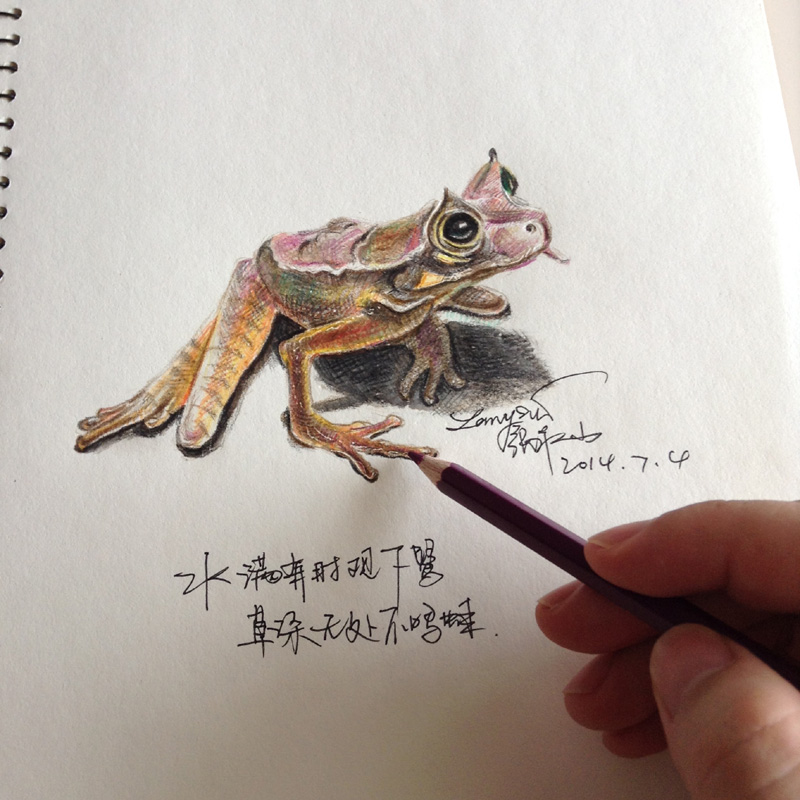 2014.7.4
水满有时观下鹭
草深无处不鸣蛙.